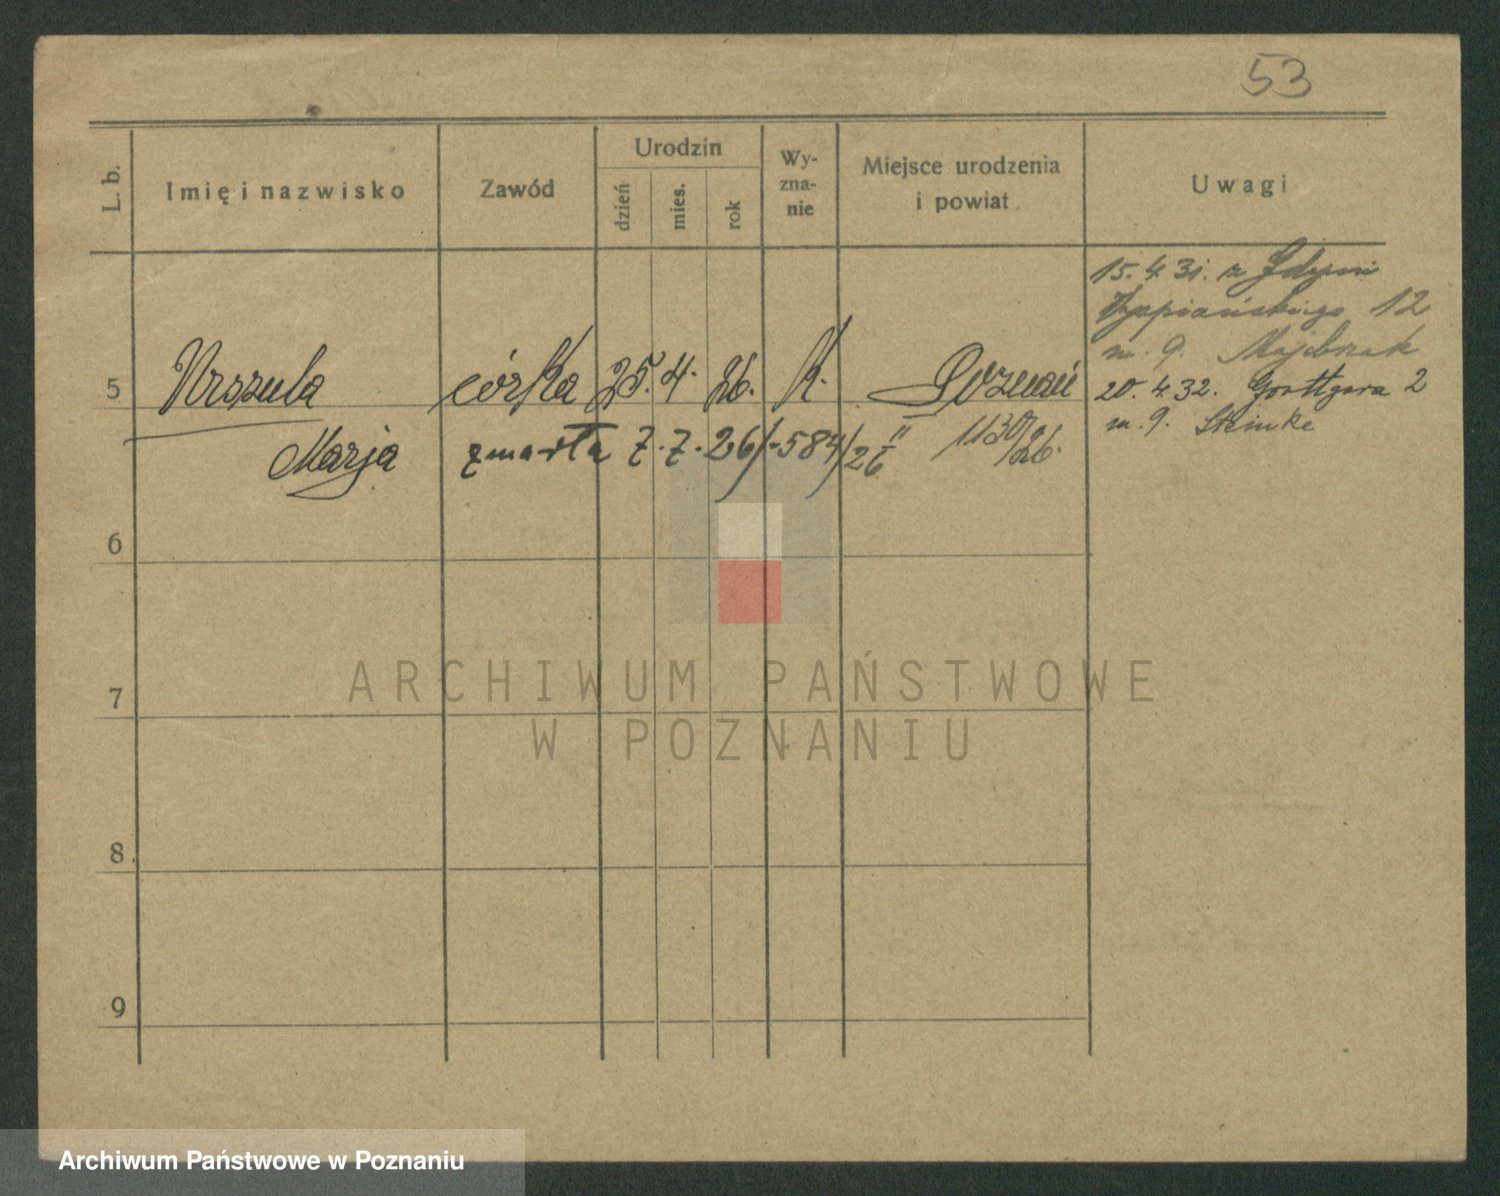 53
L. b.
Imię i nazwisko
Zawód
Urodzin
dzień
mies.
rok
Wy-
zna-
nie
Miejsce urodzenia
i powiat
Uwagi
15. 4. 31. z Gdyni
Wyspiańskiego 12
m. 9. Majchrzak
5 Urszula córka 25. 4. 26. k. Poznań
20. 4. 32. Grottgera 2
m. 9. Steinke
Marja zmarła 7. 7. 26 /-584/26 II 1130/26.
6
7
8
9
ARCHIWUM PAŃSTWOWE
W POZNANIU
Archiwum Państwowe w Poznaniu